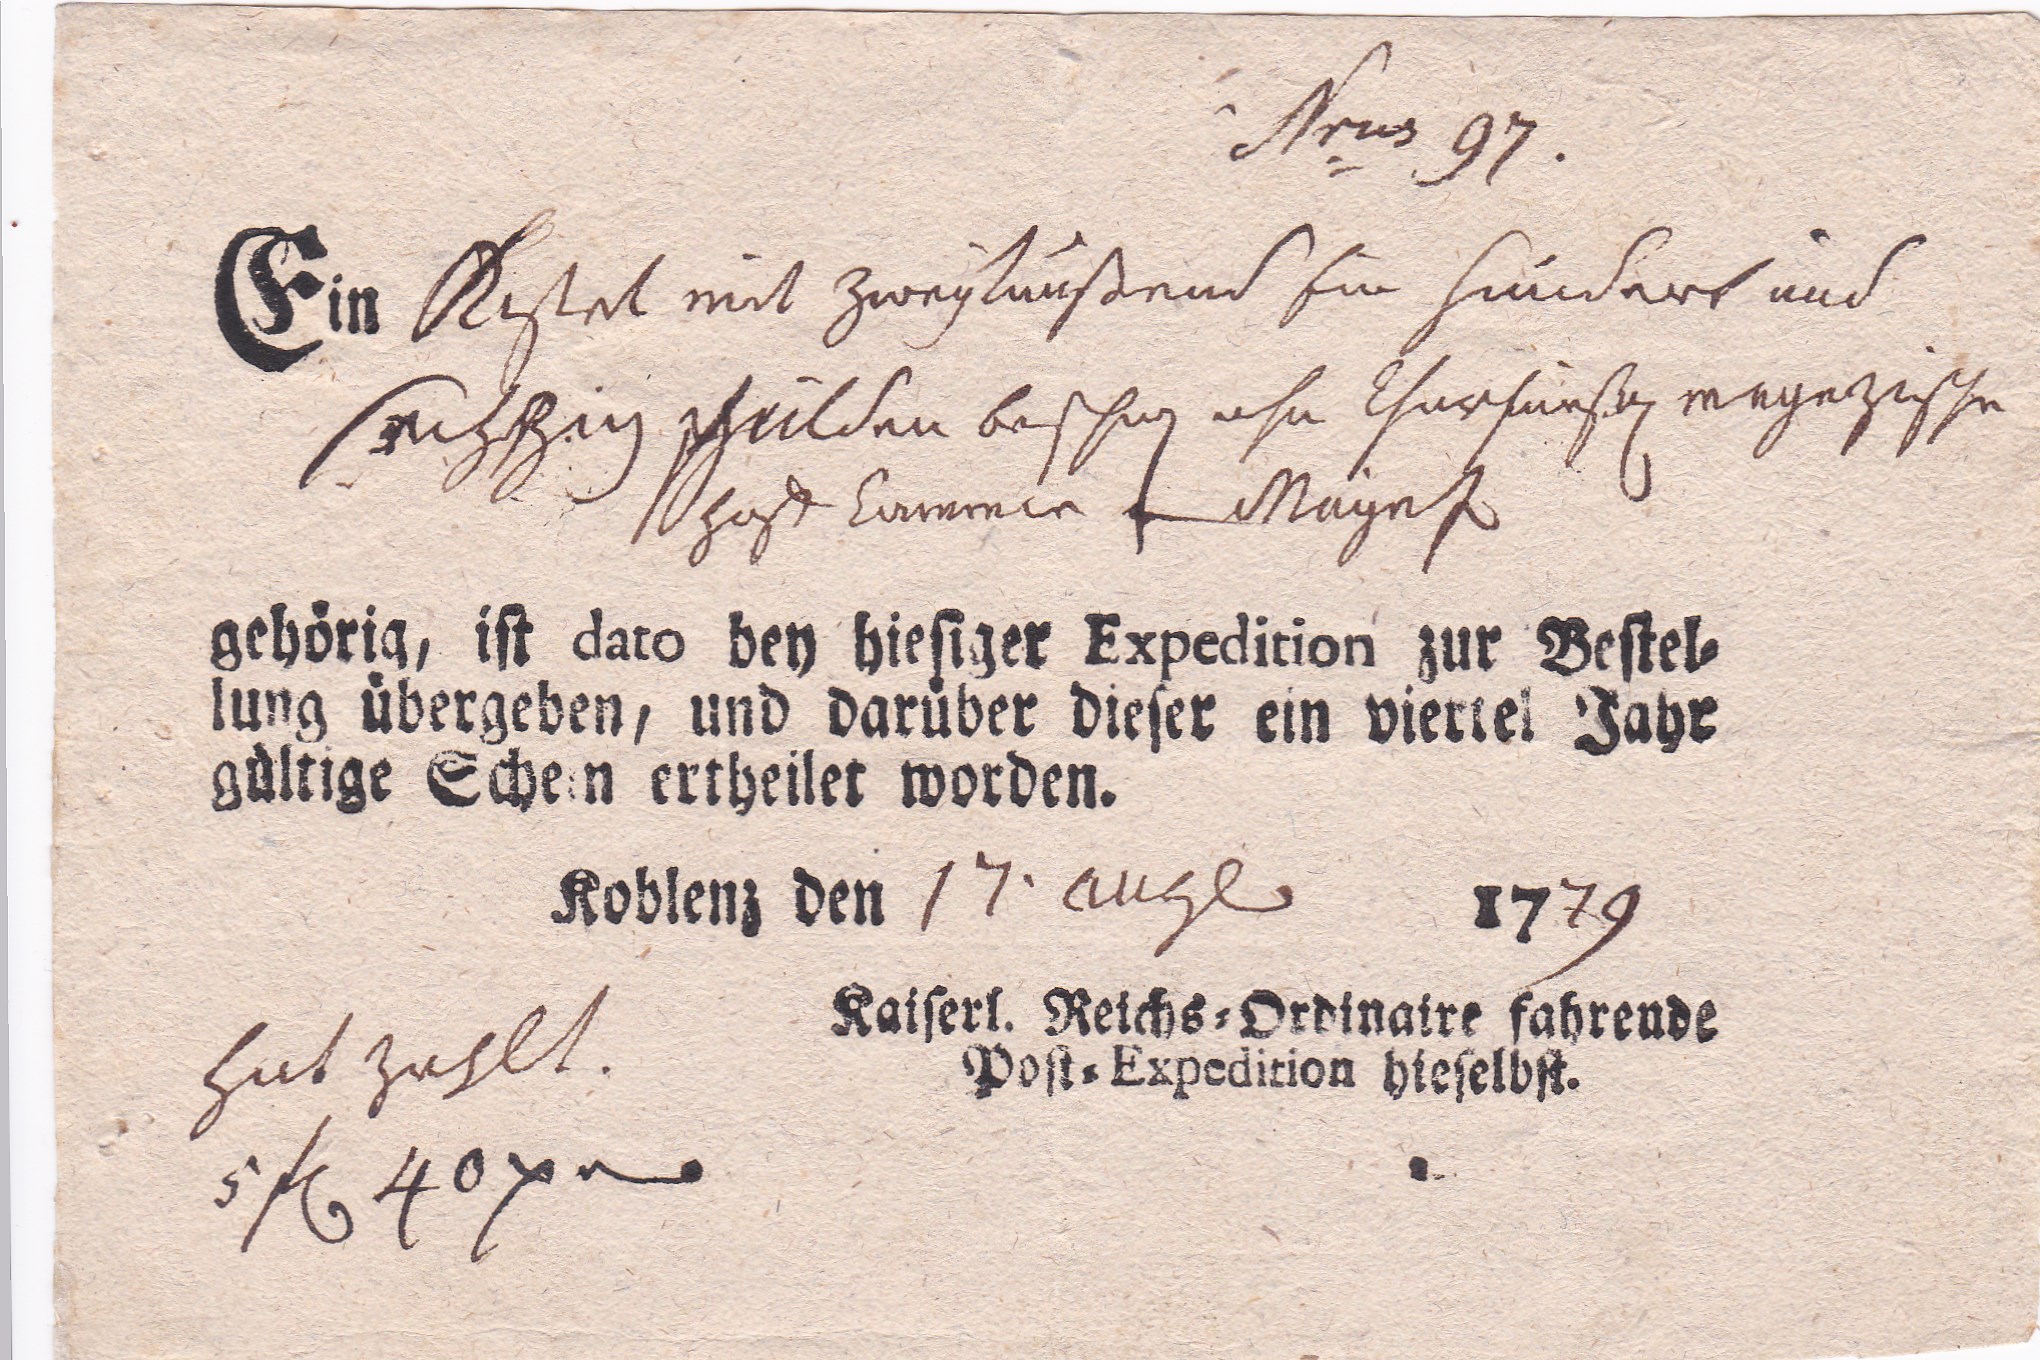 Nrus 97.
Ein Kistel mit zweytaußend Ein Hundert und
sechszig gulden
Hoff Cammer Maÿntz
gehörig, iſt dato bey hieſiger Expedition zur Beſtel-
lung übergeben, und darüber dieſer ein viertel Jahr
gültige Schein ertheilet worden.
Koblenz den 17. aug 1779
Kaiſerl. Reichs-Ordinaire fahrende
Poſt-Expedition hieſelbſt.
hat zahlt.
5 fl 40 xr